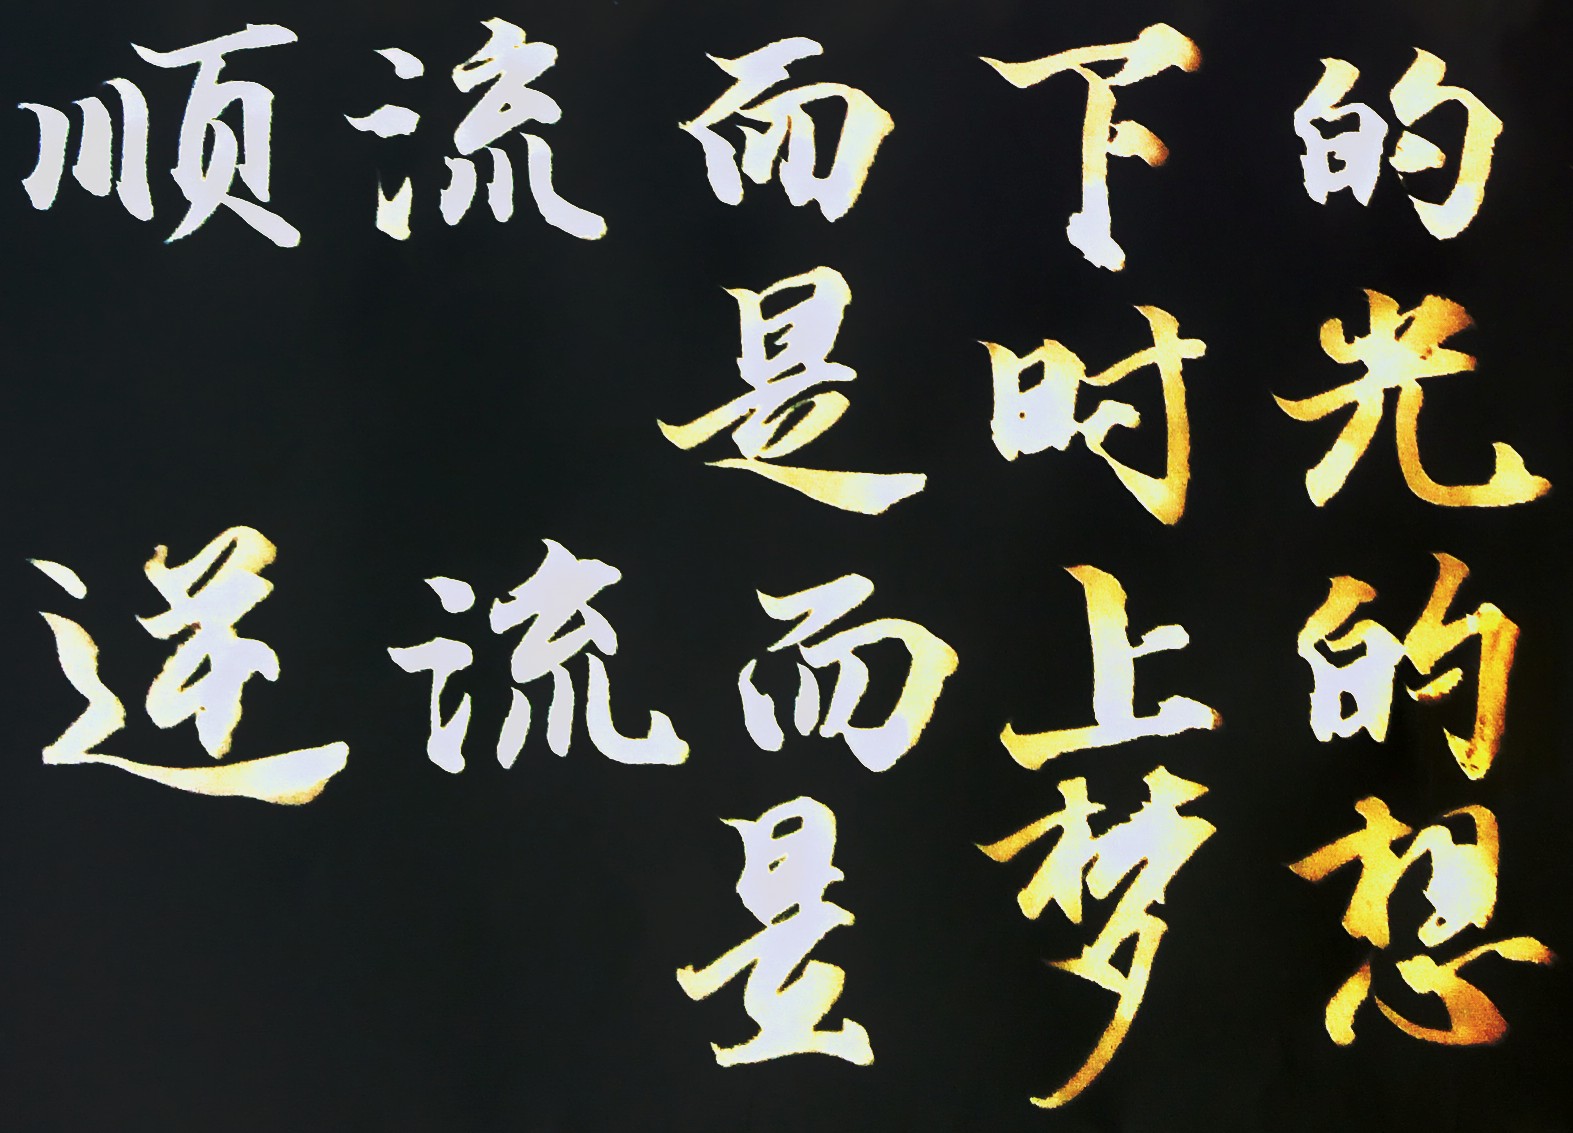 顺流而下的
是时光
逆流而上的
是梦想